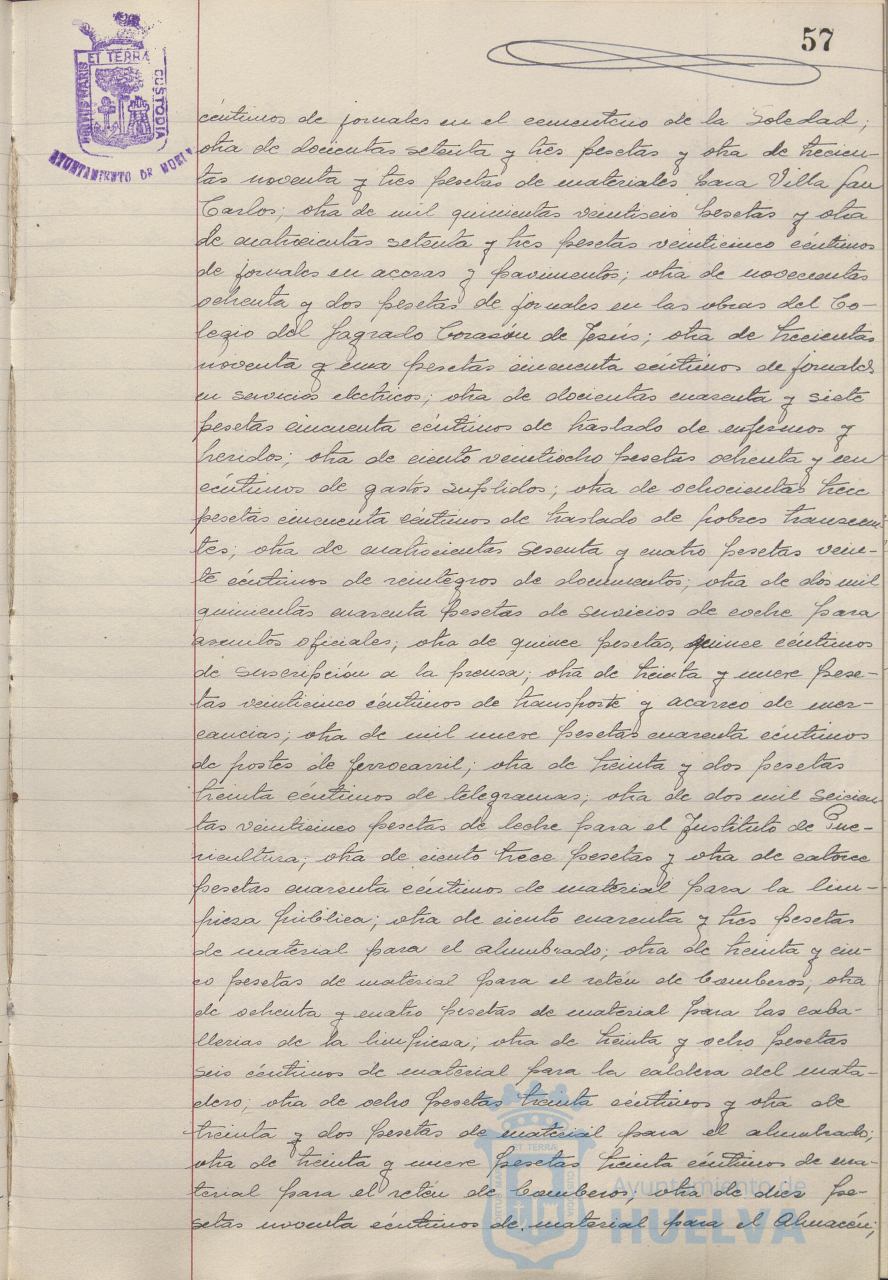 57
PORTUS MARIS
ET TERRA
CUSTODIA
AYUNTAMIENTO DE HUELVA
céntimos de jornales en el cementerio de la Soledad;
otra de docientas setenta y tres pesetas y otra de trecien-
tas noventa y tres pesetas de materiales para Villa San
Carlos; otra de mil quinientas veintiseis pesetas y otra
de cuatrocientas setenta y tres pesetas veinticinco céntimos
de jornales en aceras y pavimentos; otra de novecientas
ochenta y dos pesetas de jornales en las obras del Co-
legio del Sagrado Corasón de Jesús; otra de trecientas
noventa y una pesetas cincuenta céntimos de jornales
en servicios electricos; otra de docientas cuarenta y siete
pesetas cincuenta céntimos de traslado de enfermos y
heridos; otra de ciento veintiocho pesetas ochenta y un
céntimos de gastos suplidos; otra de ochocientas trece
pesetas cincuenta céntimos de traslado de pobres transeun-
tes; otra de cuatrocientas sesenta y cuatro pesetas vein-
te céntimos de reintegros de documentos; otra de dos mil
quinientas cuarenta pesetas de servicios de coche para
asuntos oficiales; otra de quince pesetas, quince céntimos
de suscripción a la prensa; otra de treinta y nueve pese-
tas veinticinco céntimos de transporte y acarreo de mer-
cancias; otra de mil nueve pesetas cuarenta céntimos
de postes de ferrocarril; otra de treinta y dos pesetas
treinta céntimos de telegramas; otra de dos mil seicien-
tas veinticinco pesetas de leche para el Instituto de Pue-
ricultura; otra de ciento trece pesetas y otra de catorce
pesetas cuarenta céntimos de material para la lim-
piesa pública; otra de ciento cuarenta y tres pesetas
de material para el alumbrado; otra de treinta y cin-
co pesetas de material para el retén de bomberos; otra
de ochenta y cuatro pesetas de material para las caba-
llerias de la limpiesa; otra de treinta y ocho pesetas
seis céntimos de material para la caldera del mata-
dero; otra de ocho pesetas treinta céntimos y otra de
treinta y dos pesetas de material para el alumbrado;
otra de treinta y nueve pesetas treinta céntimos de ma-
terial para el retén de bomberos; otra de dies pe-
setas noventa céntimos de material para el Almacén;
Ayuntamiento de
HUELVA